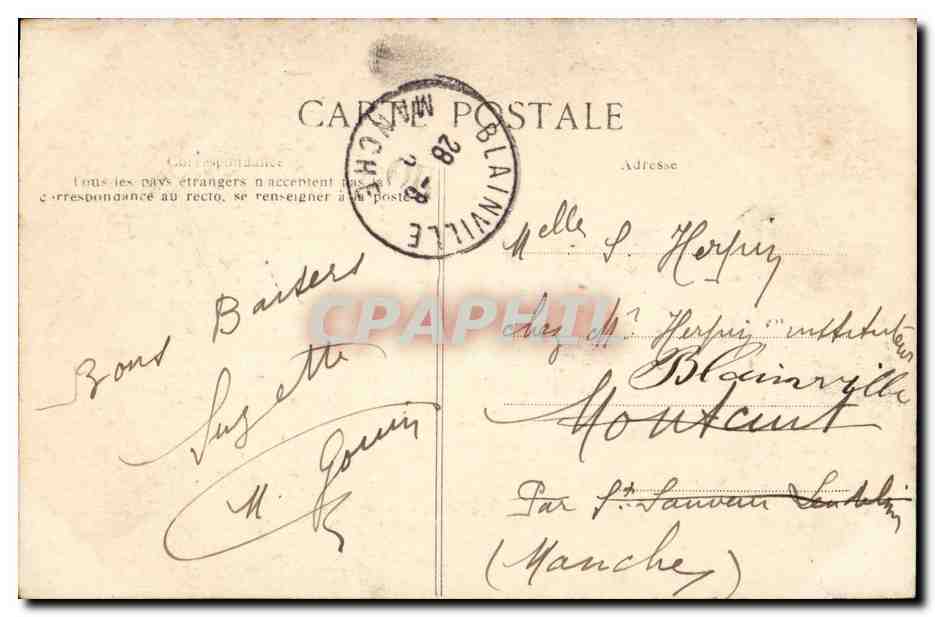 CARTE POSTALE
BLAINVILLE
28 - 8
MANCHE
Correspondance
Tous les pays étrangers n'acceptent pas la
correspondance au recto, se renseigner à la poste
Adresse
Melle S. Herpin
chez Mr Herpin instituteur
Blainville
Montcuit
Par St. Sauveur Lendelin
(Manche)
Bons Baisers
Suzette
M. Gouin
CPAPHIL